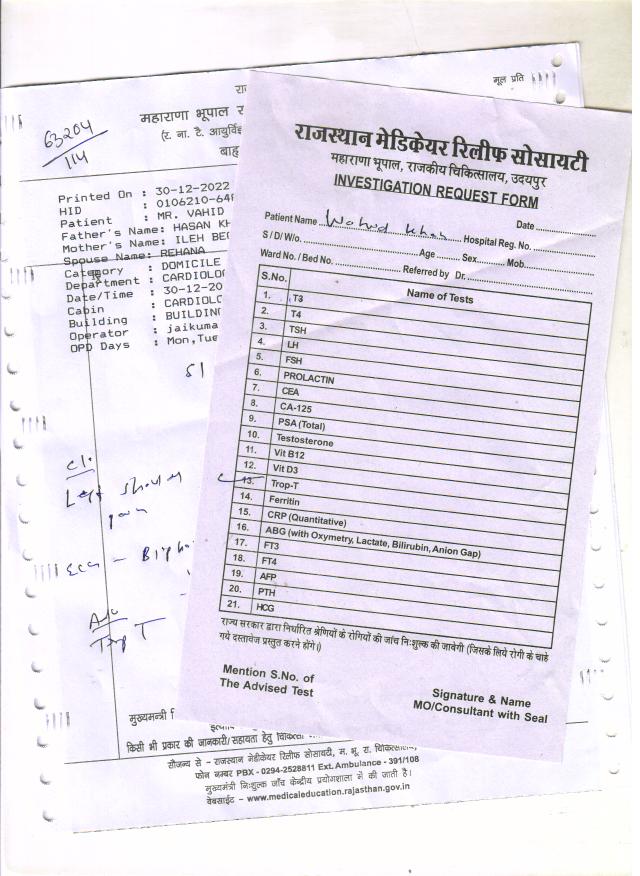 मूल प्रति
रा
महाराणा भूपाल र
(र. ना. टै. आयुर्वि
बाह
63204
114
Printed On : 30-12-2022
HID : 0106210-64
Patient : MR. VAHID
Father's Name: HASAN KH
Mother's Name: ILEH BEG
Spouse Name: REHANA
Category : DOMICILE
Department : CARDIOLO
Date/Time : 30-12-20
Cabin : CARDIOLO
Building : BUILDIN
Operator : jaikuma
OPD Days : Mon,Tue
Left
pain
ECG -
Adv
Trop T
मुख्यमन्त्री
किसी भी प्रकार की जानकारी/सहायता हेतु चिकित्स
सौजन्य से - राजस्थान मेडीकेयर रिलीफ सोसायटी, म. भू. रा. चिकित्सालय,
फोन नम्बर PBX - 0294-2528811 Ext. Ambulance - 391/108
मुख्यमंत्री निःशुल्क जाँच केन्द्रीय प्रयोगशाला में की जाती है।
वेबसाईट - www.medicaleducation.rajasthan.gov.in
राजस्थान मेडिकेयर रिलीफ सोसायटी
महाराणा भूपाल, राजकीय चिकित्सालय, उदयपुर
INVESTIGATION REQUEST FORM
Date
Patient Name Wahid Khan Hospital Reg. No.
S / D/ W/o. Age Sex Mob.
Ward No. / Bed No. Referred by Dr.
S.No. Name of Tests
1. T3
2. T4
3. TSH
4. LH
5. FSH
6. PROLACTIN
7. CEA
8. CA-125
9. PSA (Total)
10. Testosterone
11. Vit B12
12. Vit D3
13. Trop-T
14. Ferritin
15. CRP (Quantitative)
16. ABG (with Oxymetry, Lactate, Bilirubin, Anion Gap)
17. FT3
18. FT4
19. AFP
20. PTH
21. HCG
राज्य सरकार द्वारा निर्धारित श्रेणियों के रोगियों की जांच निःशुल्क की जावेगी (जिसके लिये रोगी के चाहे
गये दस्तावेज प्रस्तुत करने होंगे।)
Mention S.No. of
The Advised Test
Signature & Name
MO/Consultant with Seal